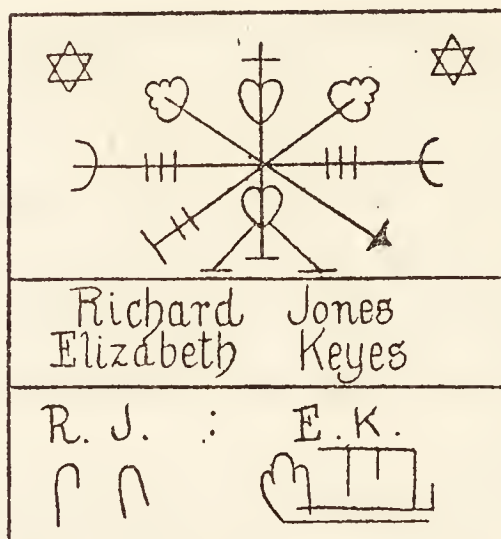 Richard Jones
Elizabeth Keyes
R. J. : E. K.